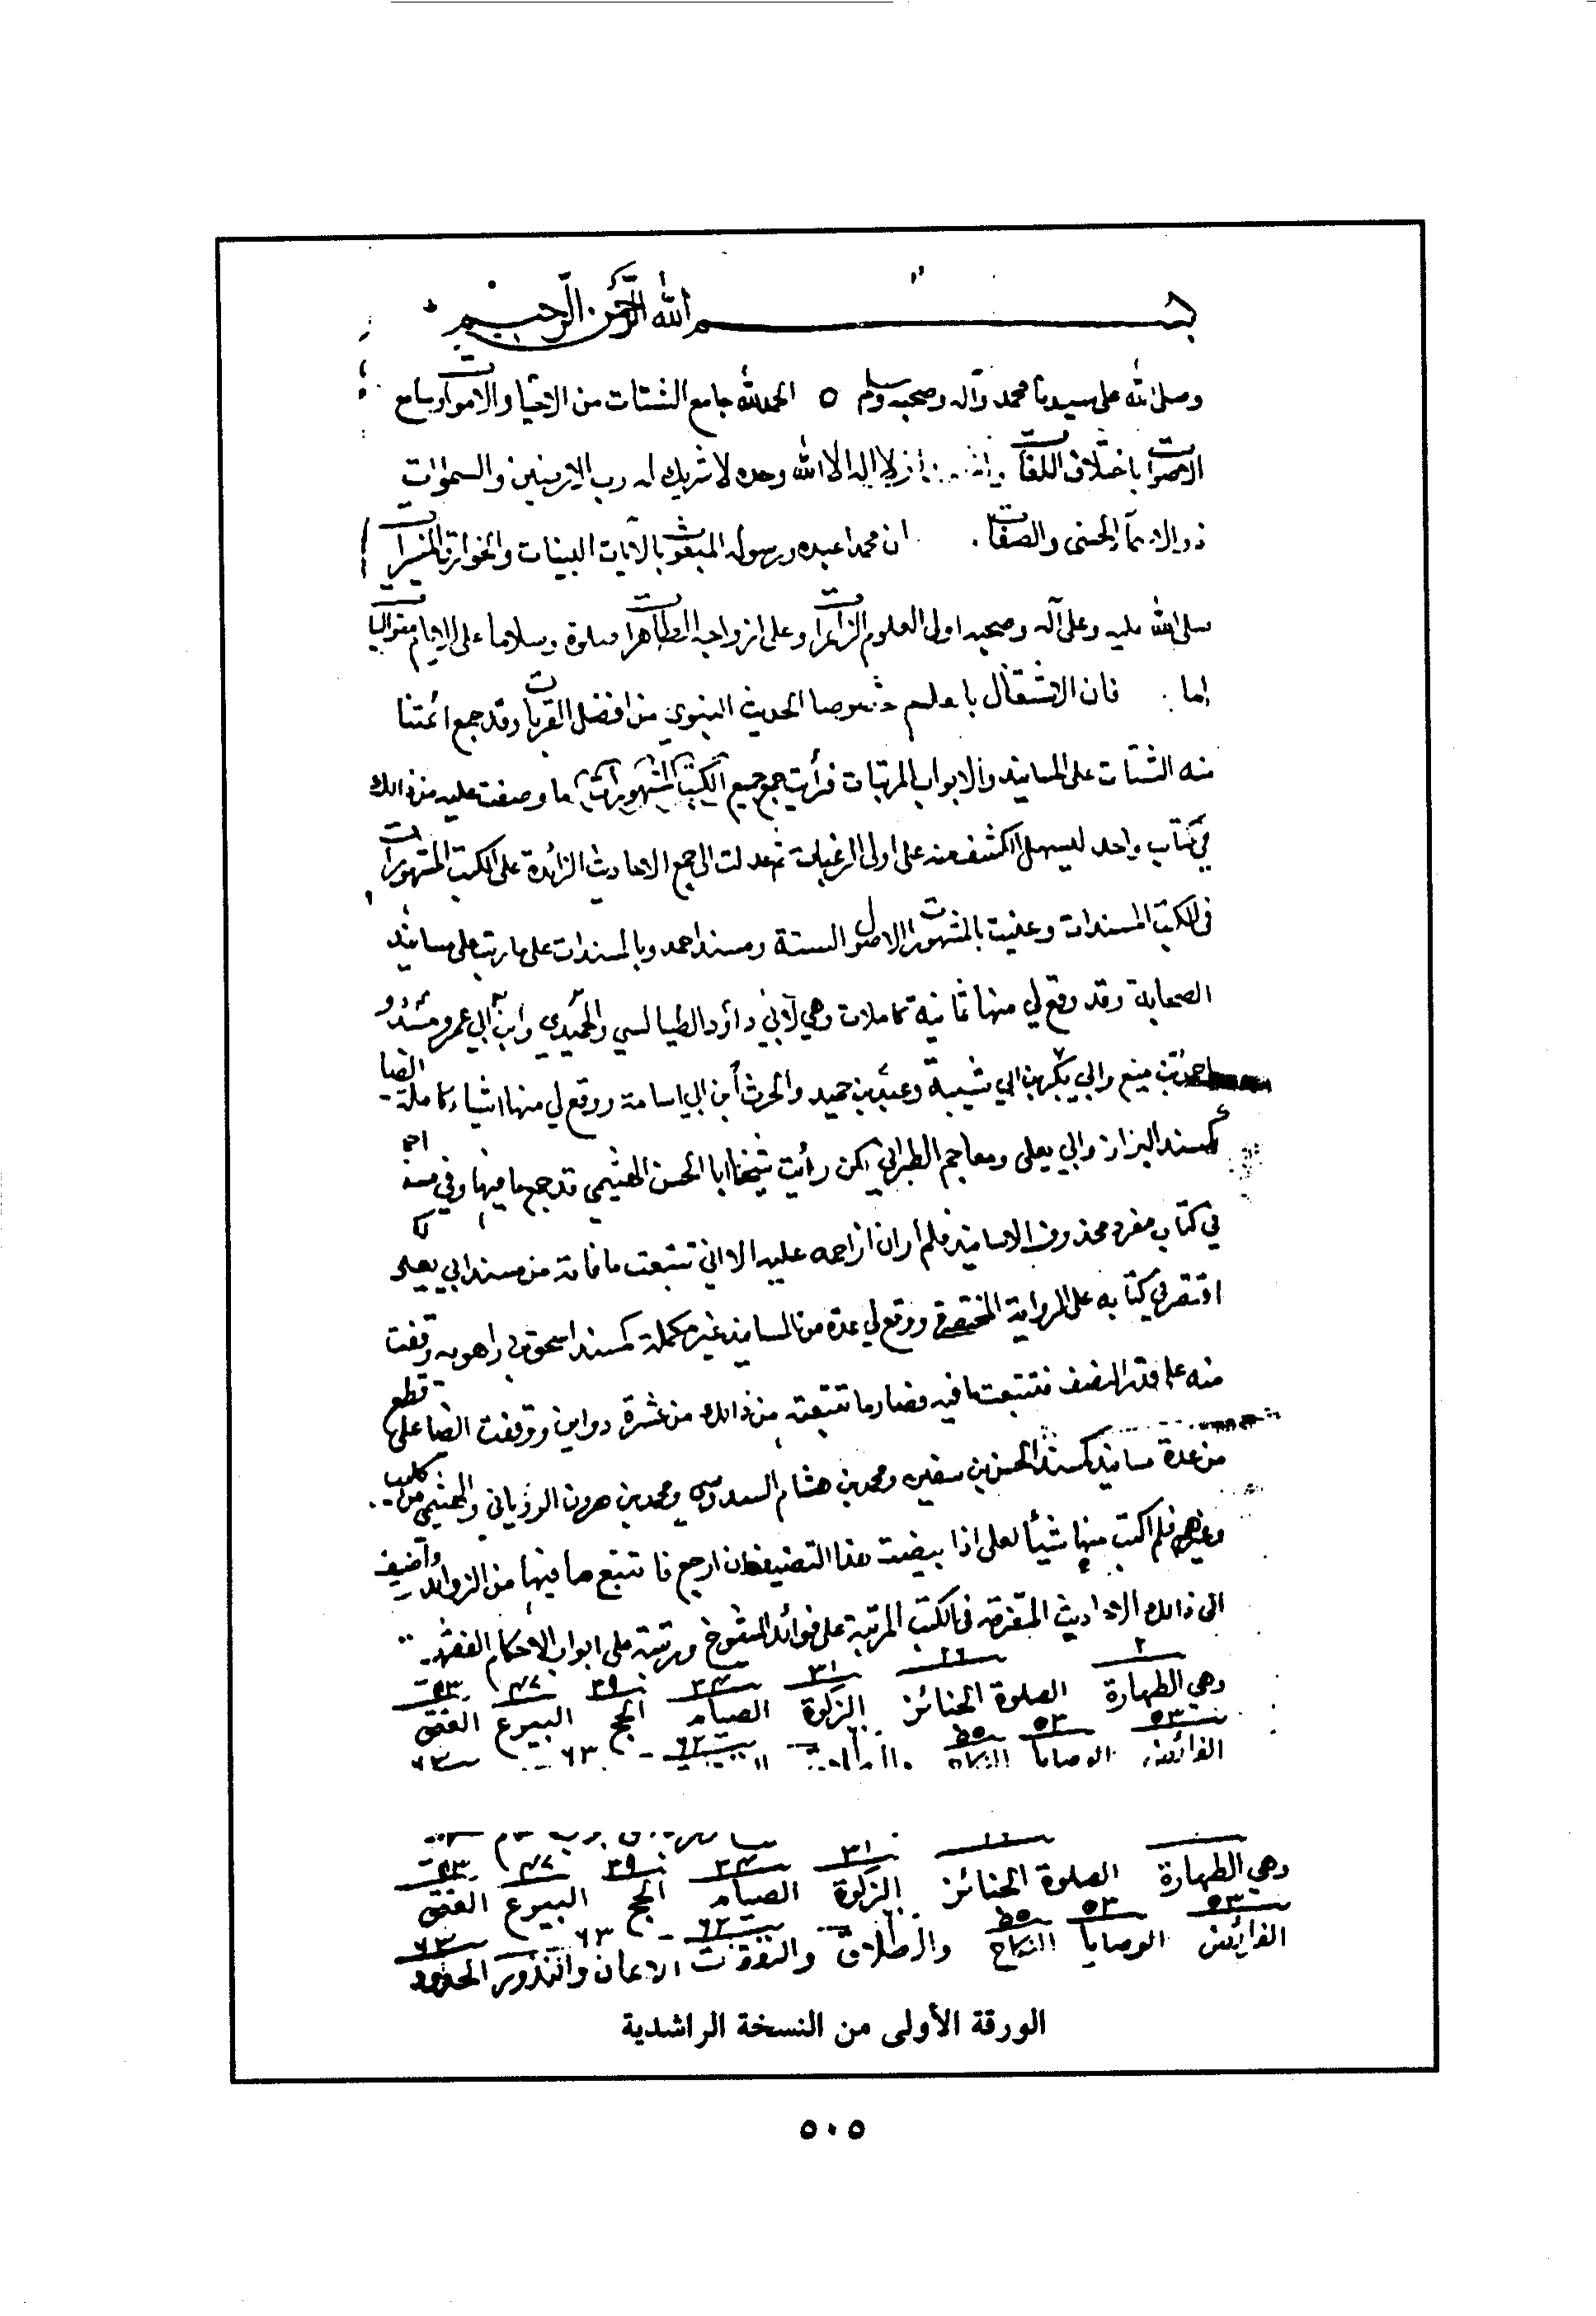 بسم الله الرحمن الرحيم
وصلى الله على سيدنا محمد وآله وصحبه وسلم ٥ الحمد لله جامع الشتات من الاحيا والاموات وسامع
الاصوات باختلاف اللغات ان لا اله الا الله وحده لا شريك له رب الارضين والسموات
ذو الاسماء الحسنى والصفات ان محمدا عبده ورسوله المبعوث بالآيات البينات والخوارق
صلى الله عليه وعلى آله وصحبه اولى العلوم الزاهرات وعلى ازواجه الطاهرات صلوة وسلاما على الايام متواليات
اما فان الاشتغال بالعلم خصوصا الحديث النبوي من افضل القربات وقد جمع ائمتنا
منه الشتات على المسانيد والابواب المرتبات فرأيت جمع جميع الكتب المشهورات ما وصفت عليه من ذالك
في كتاب واحد ليسهل الكشف منه على اولى الرغبات ثم عدلت الى جمع الاحاديث الزائدة على الكتب المشهورات
في الكتب المسندات وعنيت بالمشهورات الاصول الستة ومسند احمد وبالمسندات على ما رتب على مسانيد
الصحابة وقد وقع لي منها ثمانية كاملات وهي لابي داؤد الطيالسي والحميدي وابن ابي عمر ومسدد و
احمد بن منيع وابي بكر بن ابي شيبة وعبد بن حميد والحرث ابن ابي اسامة ووقع لي منها اشياء كاملة ايضا
كمسند البزار وابي يعلى ومعاجم الطبراني لكن رأيت شيخنا ابا الحسن الهيثمي قد جمع ما فيها وفي مسند احمد
في كتاب مفرد محذوف الاسانيد فلم ار ان ازاحمه عليه الا اني تتبعت ما فاته من مسند ابي يعلى
اقتصر في كتابه على الرواية المختصرة ووقع لي عدة من المسانيد غير مكملة كمسند اسحق بن راهويه وقفت
منه على قدر النصف فتتبعت ما فيه فصار ما تتبعته من ذالك من عشرة دواوين ووقفت ايضا على قطع
من عدة مسانيد كمسند الحسن بن سفين ومحمد بن هشام السدوسي ومحمد بن هرون الروياني والهيثم بن كليب
وغيرهم فلم اكتب منها شيأ لعلى اذا بيضت هذا التصنيف ان ارجع فاتتبع ما فيها من الزوائد واضيف
الى ذالك الاحاديث المتفرقة في الكتب المرتبة على فوائد الشيوخ ورتبته على ابواب الاحكام الفقهية
٢ ٢٦ ٣١ ٣٤ ٣٩ ٤٧ ٥٣
وهي الطهارة الصلوة الجنائز الزكوة الصيام الحج البيوع العتق
٥٣ ٥٣ ٥٥ ٦٢ ٦٣ ٦٣
الفرائض الوصايا النكاح
٢٦ ٣١ ٣٤ ٣٩ ٤٧ ٥٣
وهي الطهارة الصلوة الجنائز الزكوة الصيام الحج البيوع العتق
٥٣ ٥٣ ٥٥ ٦٢ ٦٣ ٦٣
الفرائض الوصايا النكاح والطلاق والنفقات الايمان والنذور الحدود
الورقة الأولى من النسخة الراشدية
٥٠٥